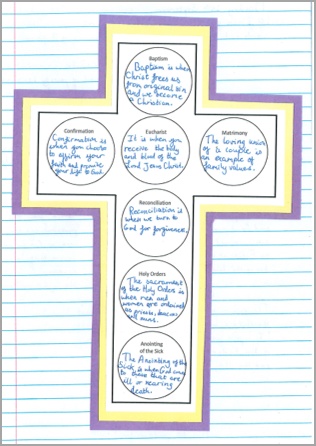 Baptism
Baptism is when
Christ frees us
from original sin
and we become
a Christian.
Confirmation
Confirmation is
when you choose
to affirm your
faith and promise
your life to God.
Eucharist
It is when you
receive the body
and blood of the
Lord Jesus Christ.
Matrimony
The loving union
of a couple is
an example of
family values.
Reconciliation
Reconciliation is
when we turn to
God for forgiveness.
Holy Orders
The sacrament
of the Holy Orders is
when men and
women are ordained
as
Anointing
of the Sick
The Anointing of the
Sick, is when God
to those that are
ill or nearing
death.